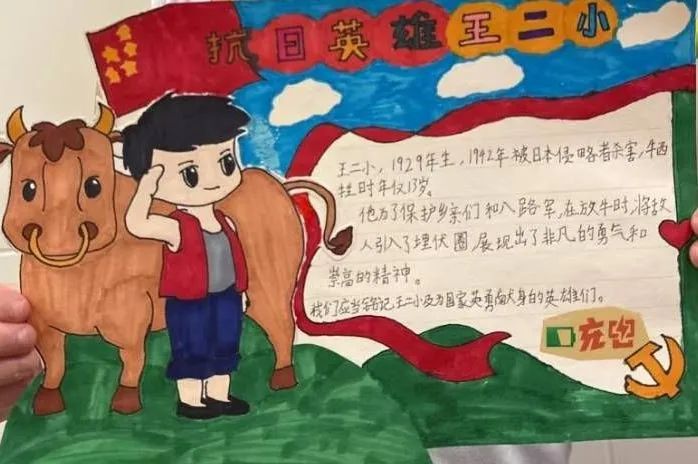 抗日英雄王二小
王二小，1929年生，1942年被日本侵略者杀害，牺
牲时年仅13岁。
他为了保护乡亲们和八路军，在放牛时，将敌
人引入了埋伏圈，展现出了非凡的勇气和
崇高的精神。
我们应当铭记王二小及为国家英勇献身的英雄们。
充电